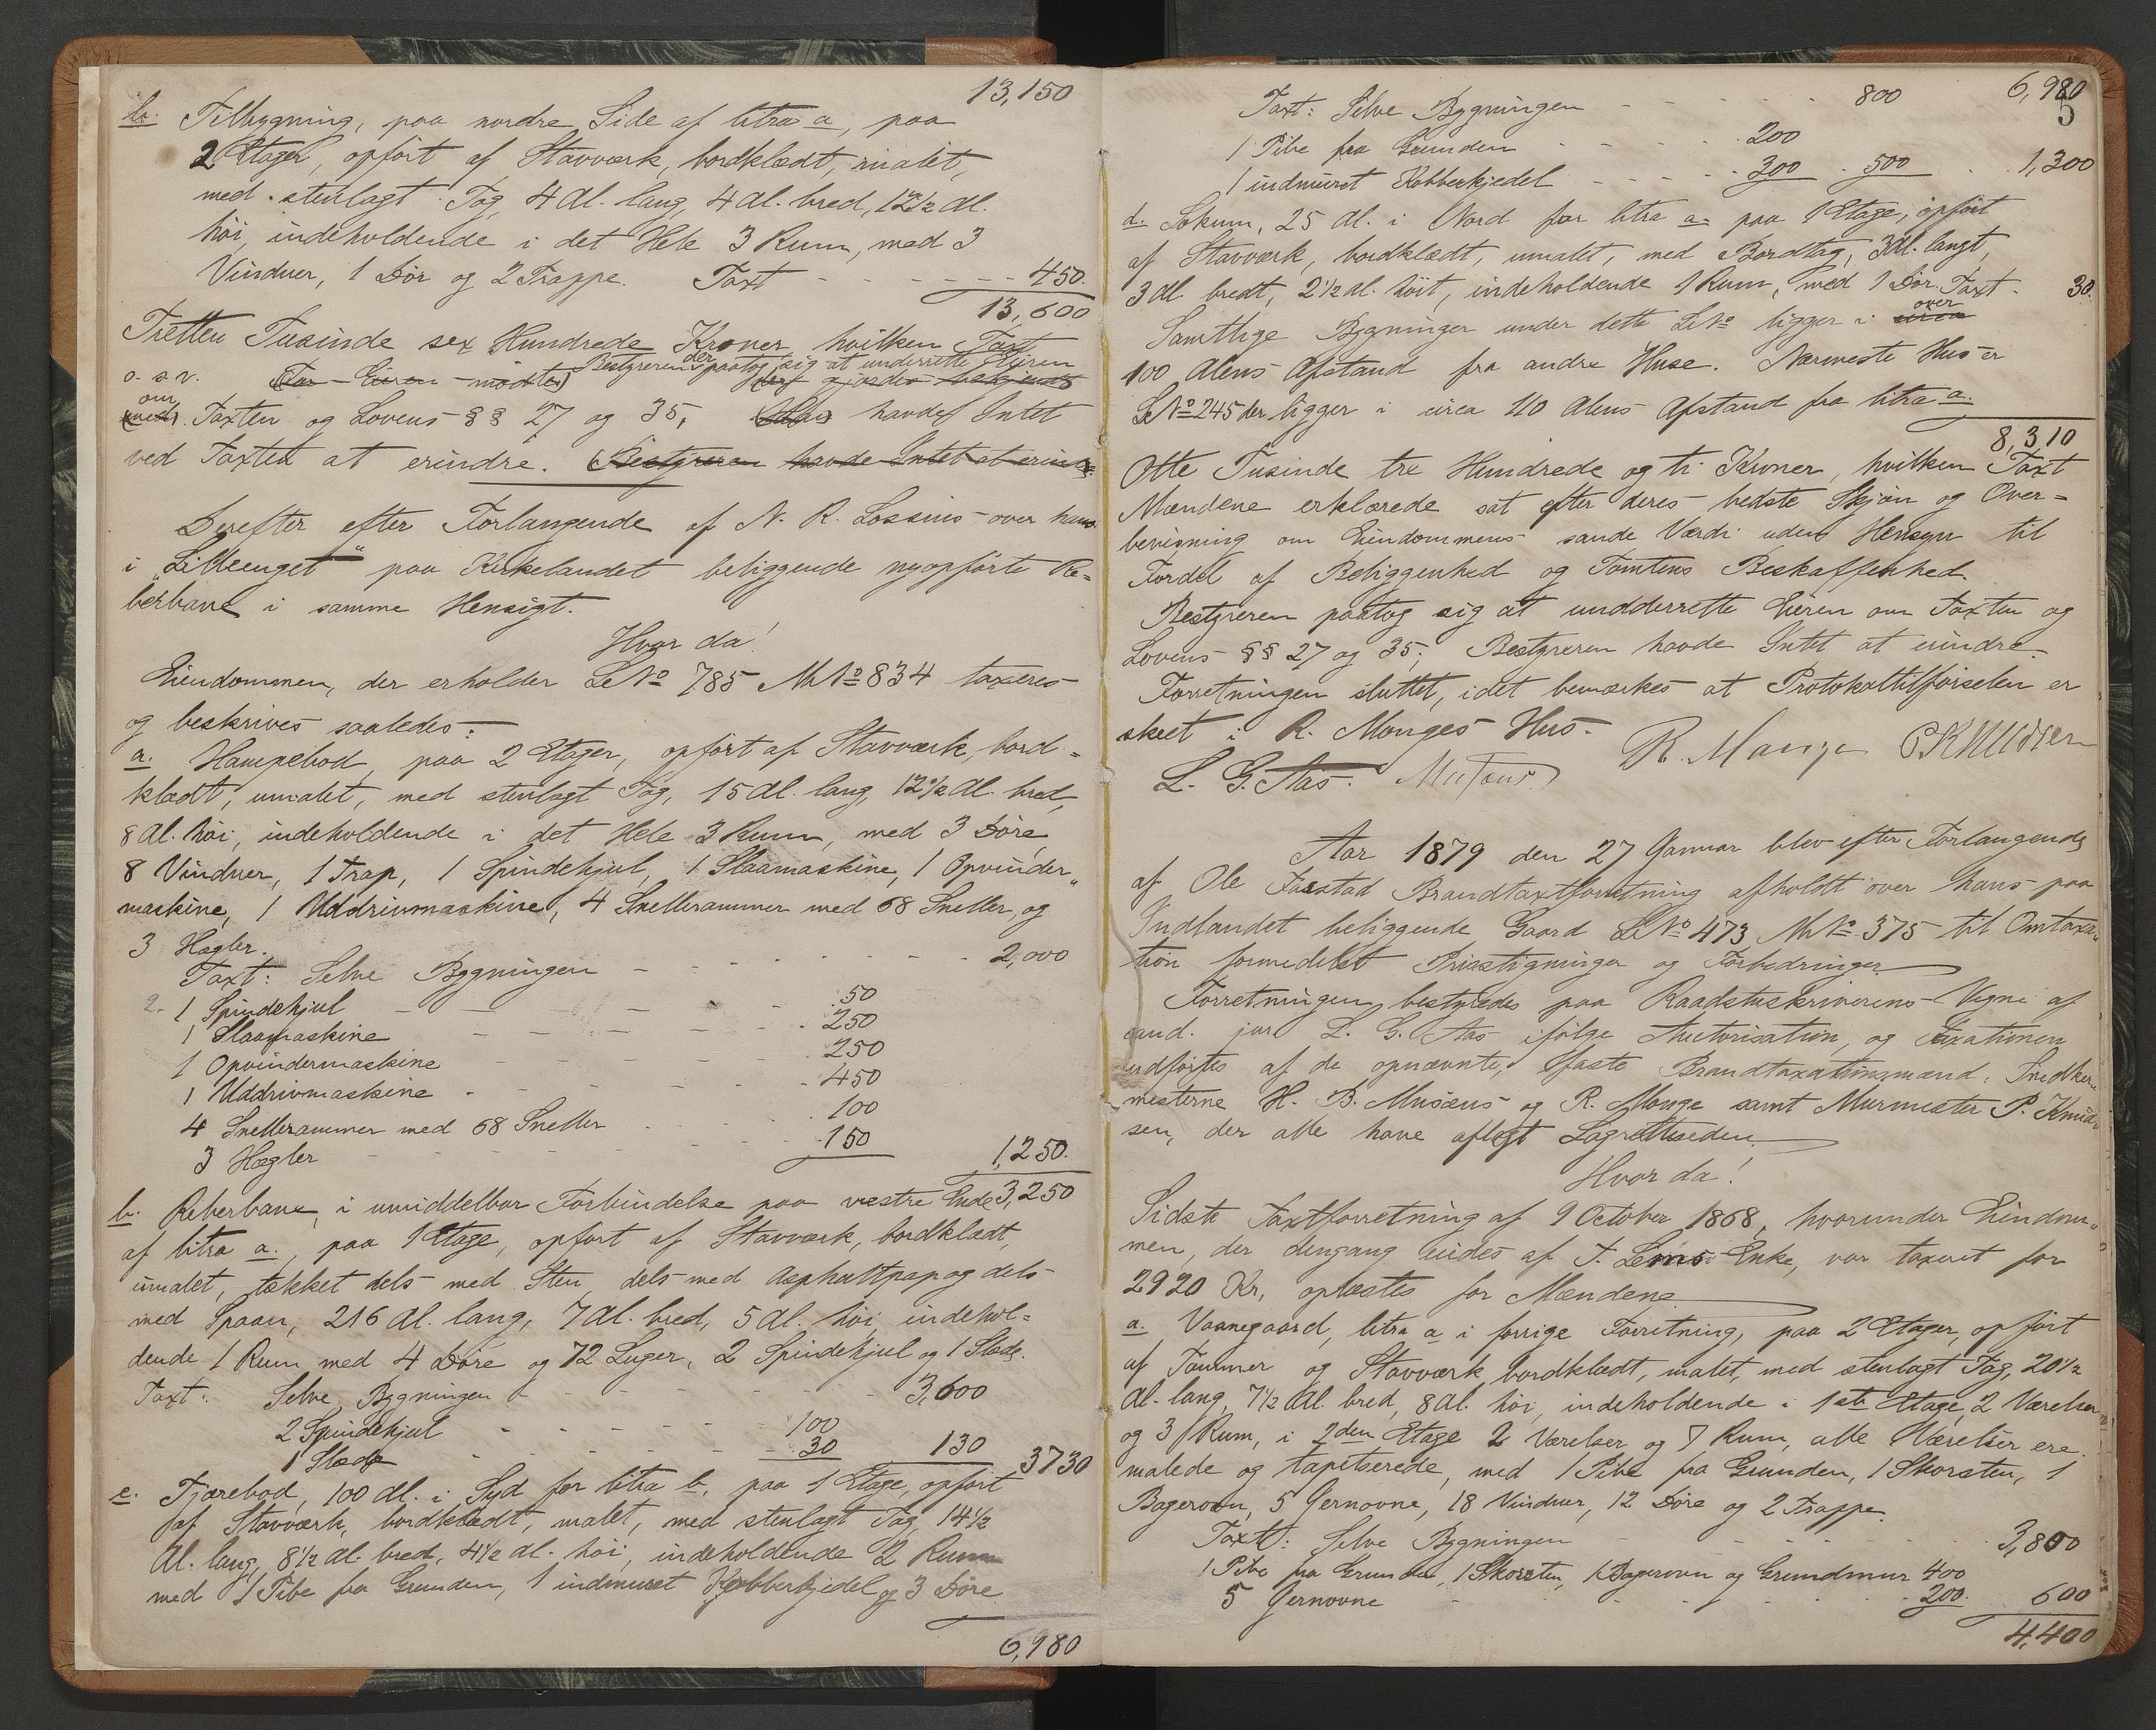 13,150
b. Tilbygning, paa nordre Side af litra a, paa
2 Etager, opført af Stavværk, bordklædt, malet,
med stenlagt Tag, 4 Al. lang, 4 Al. bred, 12½ Al.
høi, indeholdende i det Hele 3 Rum, med 3
Vinduer, 1 Dør og 2 Trappe. Taxt - - - - 450.
13,600
Tretten Tusinde sex Hundrede Kroner, hvilken Taxt
o. s. v. (For Eieren mødte) Bestyreren der paatog sig at underrette Eieren
om
Taxten og Lovens §§ 27 og 35, havde Intet
ved Taxten at erindre. (Bestyreren havde Intet at erindre.
Derefter efter Forlangende af N. R. Lossius over hans
i "Lilleenget" paa Kirkelandet beliggende nyopførte Re=
berbane i samme Hensigt.
Hvor da!
Eiendommen, der erholder LNo 785 MNo 834 taxeres
og beskrives saaledes:
a. Hampebod, paa 2 Etager, opført af Stavværk, bord=
klædt, umalet, med stenlagt Tag, 15 Al. lang, 12½ Al. bred,
8 Al. høi, indeholdende i det Hele 3 Rum, med 3 Døre,
8 Vinduer, 1 Trap, 1 Spindehjul, 1 Slaamaskine, 1 Opvinder"
maskine, 1 Uddrivmaskine, 4 Snellerammer med 68 Sneller, og
3 Hegler.
Taxt: Selve Bygningen - - - - - 2,000
2. 1 Spindehjul - - - - 50
1 Slaamaskine - - - - 250
1 Opvindermaskine - - - 250
1 Uddrivmaskine - - - - 450
4 Snellerammer med 68 Sneller - - - 100
3 Hegler - - - - 150 1,250.
3,250
b. Reberbane, i umiddelbar Forbindelse paa vestre Ende
af litra a., paa 1 Etage, opført af Stavværk, bordklædt,
umalet, tækket dels med Sten, dels med Asphaltpap og dels
med Spaan, 216 Al. lang, 7 Al. bred, 5 Al. høi, indehol=
dende 1 Rum, med 4 Døre og 72 Luger, 2 Spindehjul og 1 Slæde.
Taxt: Selve Bygningen - - - - - 3,600
2 Spindehjul - - - - 100
1 Slæde - - - - 30 130 3730
c. Tjærebod, 100 Al. i Syd for litra b, paa 1 Etage, opført
af Stavværk, bordklædt, malet, med stenlagt Tag, 14½
Al. lang, 8½ Al. bred, 4½ Al. høi, indeholdende 2 Rum
med 1 Pibe fra Grunden, 1 indmuret Kobberkjedel og 3 Døre
6,980
6,980
5
Taxt: Selve Bygningen - - - - - 800
1 Pibe fra Grunden - - - - 200
1 indmuret Kobberkjedel - - - 300 . 500 . . 1,300
d. Lokum, 25 Al. i Nord for litra a. paa 1 Etage, opført
af Stavværk, bordklædt, umalet, med Bordtag, 3 Al. langt,
3 Al. bredt, 2½ Al. høit, indeholdende 1 Rum, med 1 Dør. Taxt - 30.
Samtlige Bygninger under dette LNo ligger i circa over
100 Alens Afstand fra andre Huse. Nærmeste Hus er
LNo 245 der ligger i circa 110 Alens Afstand fra litra a.
8,310
Otte Tusinde tre Hundrede og ti Kroner, hvilken Taxt
Mændene erklærede sat efter deres bedste Skjøn og Over=
bevisning om Eiendommens sande Værdi uden Hensyn til
Fordel af Beliggenhed og Tomtens Beskaffenhed.
Bestyreren paatog sig at undderrette Eieren om Taxten og
Lovens §§ 27 og 35; Bestyreren havde Intet at erindre.
Forretningen sluttet, idet bemærkes at Protokoltilførselen er
skeet i R. Monges Hus.
R. Monge P Knudsen
L. G. Aas.
Aar 1879 den 27 Januar blev efter Forlangende
af Ole Brandtaxtforretning afholdt over hans paa
Indlandet beliggende Gaard LNo 473, MNo 375 til Omtaxa"
tion formedelst Prisstigninger og Forbedringer.
Forretningen bestyredes paa Raadstuskriverens Vegne af
cand. jur. L. G. Aas ifølge Autorisation, og Taxationen
udførtes af de opnævnte, faste Brandtaxationsmænd: Snedker
mesterne H. B. Musæus og R. Monge samt Murmester P. Knud
sen, der alle have aflagt Lagretteeden.
Hvor da!
Sidste Taxtforretning af 9 October 1868, hvorunder Eiendom"
men, der dengang eiedes af Enke, var taxeret for
2920 Kr, oplæstes for Mændene.
a. Vaanegaard, litra a i forrige Forretning, paa 2 Etager, opført
af Tømmer og Stavværk, bordklædt, malet, med stenlagt Tag, 20½
Al. lang, 7½ Al. bred, 8 Al. høi, indeholdende i 1ste Etage 2 Værelser
og 3 Rum, i 2den Etage 2 Værelser og 7 Rum, alle Værelser ere
malede og tapetserede, med 1 Pibe fra Grunden, 1 Skorsten, 1
Bagerovn, 5 Jernovne, 18 Vinduer, 12 Døre og 2 Trappe.
Taxt: Selve Bygningen - - - - - 3,800
1 Pibe fra Grunden, 1 Skorsten, 1 Bagerovn og Grundmur 400
5 Jernovne - - - - - 200. . 600
4,400